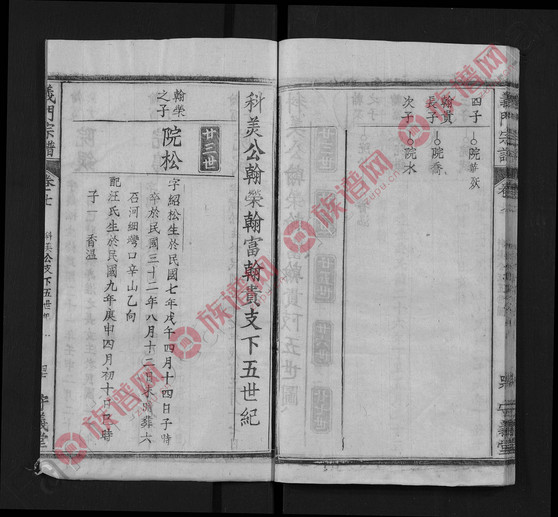 義門宗譜
卷
四子 院
翰貴
長子 院喬
次子 院水
科美公翰榮翰富翰貴支下五世紀
廿三世
翰榮之子
院松
字紹松生於民國七年戊午四月十四日子時
卒於民國三十二年八月十三日未時葬六
石河細灣口辛山乙向
配汪氏生於民國九年庚申四月初十日巳時
子一 香溫
義門宗譜
卷
科美公支下五世紀
義堂
族谱网
族谱网
族谱网